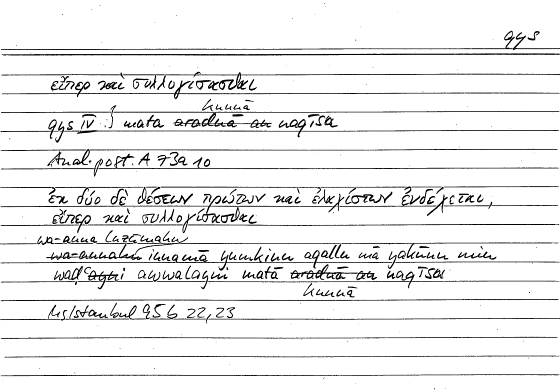 qys
εἴπερ καὶ συλλογίσασθαι
kunnā
qys IV } mata aradnā an naqīsa
Anal. post. A 73a 10
ἐκ δύο δὲ θέσεων πρώτων καὶ ἐλαχίστων ἐνδέχεται,
εἴπερ καὶ συλλογίσασθαι
wa-anna luzūmahu
wa-annahu innamā yumkinu aqallu mā yakūnu min
awwalayni matā aradnā an naqīsa
kunnā
Ms Istanbul 95b 22,23